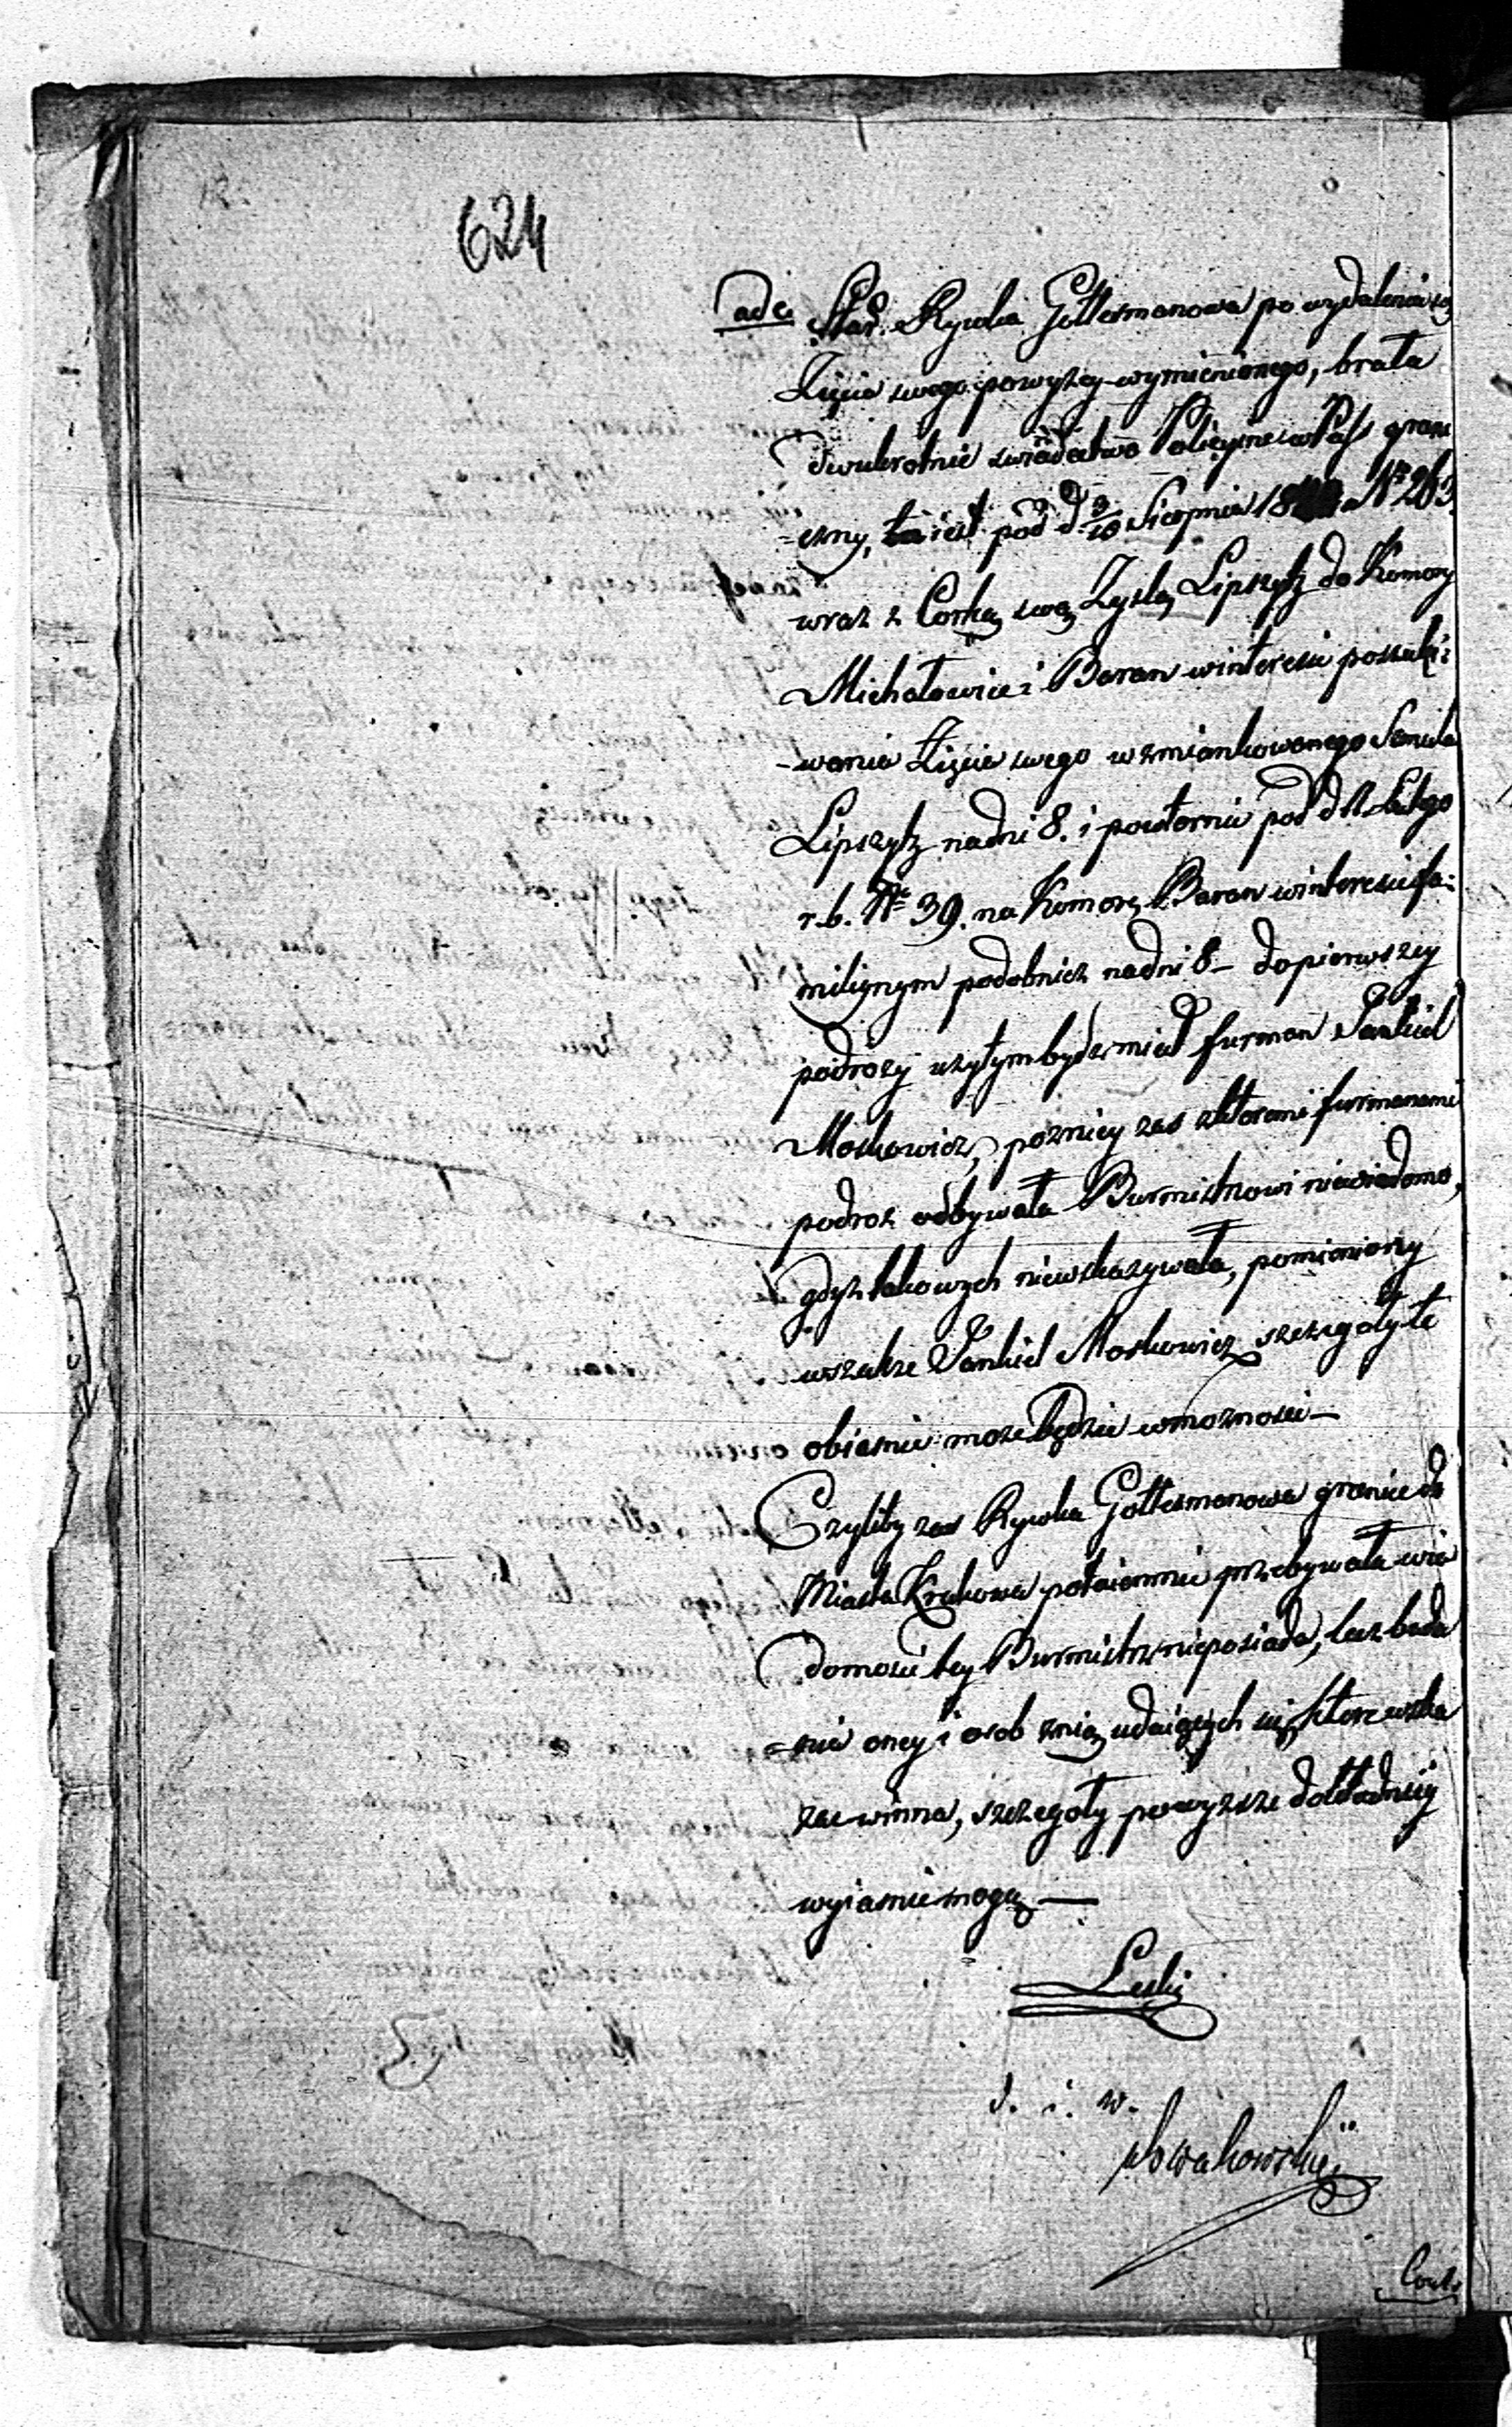 624
ad c. Star. Rywka Gotlesmanowa po wydaleniu się
Zięcia swego powyżey wymienionego, brała
dwukrotnie swiadectwo Policyine w Paszt grani
=czny, to iest pod d. 9/10 Sierpnia 18 a Nr 263
wraz z Corką swą Zyslą Lipszytz do Komory
Michałowice i Baran w interesie poszuki:
-wania Zięcia swego wzmiankowanego Samula
Lipszytz na dni 8. i powtornie pod d 12 Lutego
r. b. Nr 39. na Komorę Baran w interesie fa:
miliynym podobnież na dni 8 – do pierwszey
podroży użytym bydź miał furman Jankiel
Moskowicz, pozniey zas z ktoremi furmanami
podroż odbywała Burmistrzowi niewiadomo,
gdyż takowych niewskazywała, pomieniony
wszakze Jankiel Moskowicz szczegoły te
obiasnic może będzie w możnosci –
Czyliby zas Rywka Gotlesmanowa granice do
Miasta Krakowa potaiemnie przebywała wia
domosci tey Burmistrz nieposiada, lecz bada
=nie oney i osob z nią udaiących się, ktore wska
zac winna, szczegoły powyższe dokładniey
wyiasnic mogą —
Leski
d. i. w.
Nowakowski
Cont.